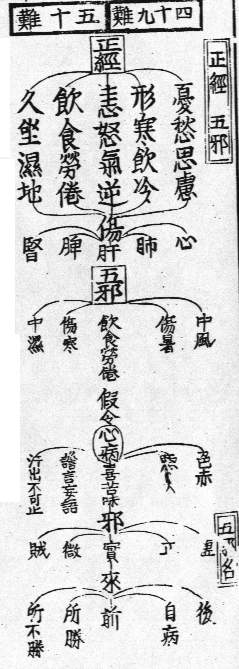 四十九難
五十難
正經 五邪
正經
憂愁思慮
形寒飲冷
恚怒氣逆
飲食勞倦
久坐濕地
傷
心
肺
肝
脾
腎
五邪
中風
傷暑
飲食勞倦
傷寒
中濕
假令心病
色赤
喜苦味
譫言妄語
汗出不可止
邪
實
微
賊
來
後
自病
前
所勝
所不勝
五 名